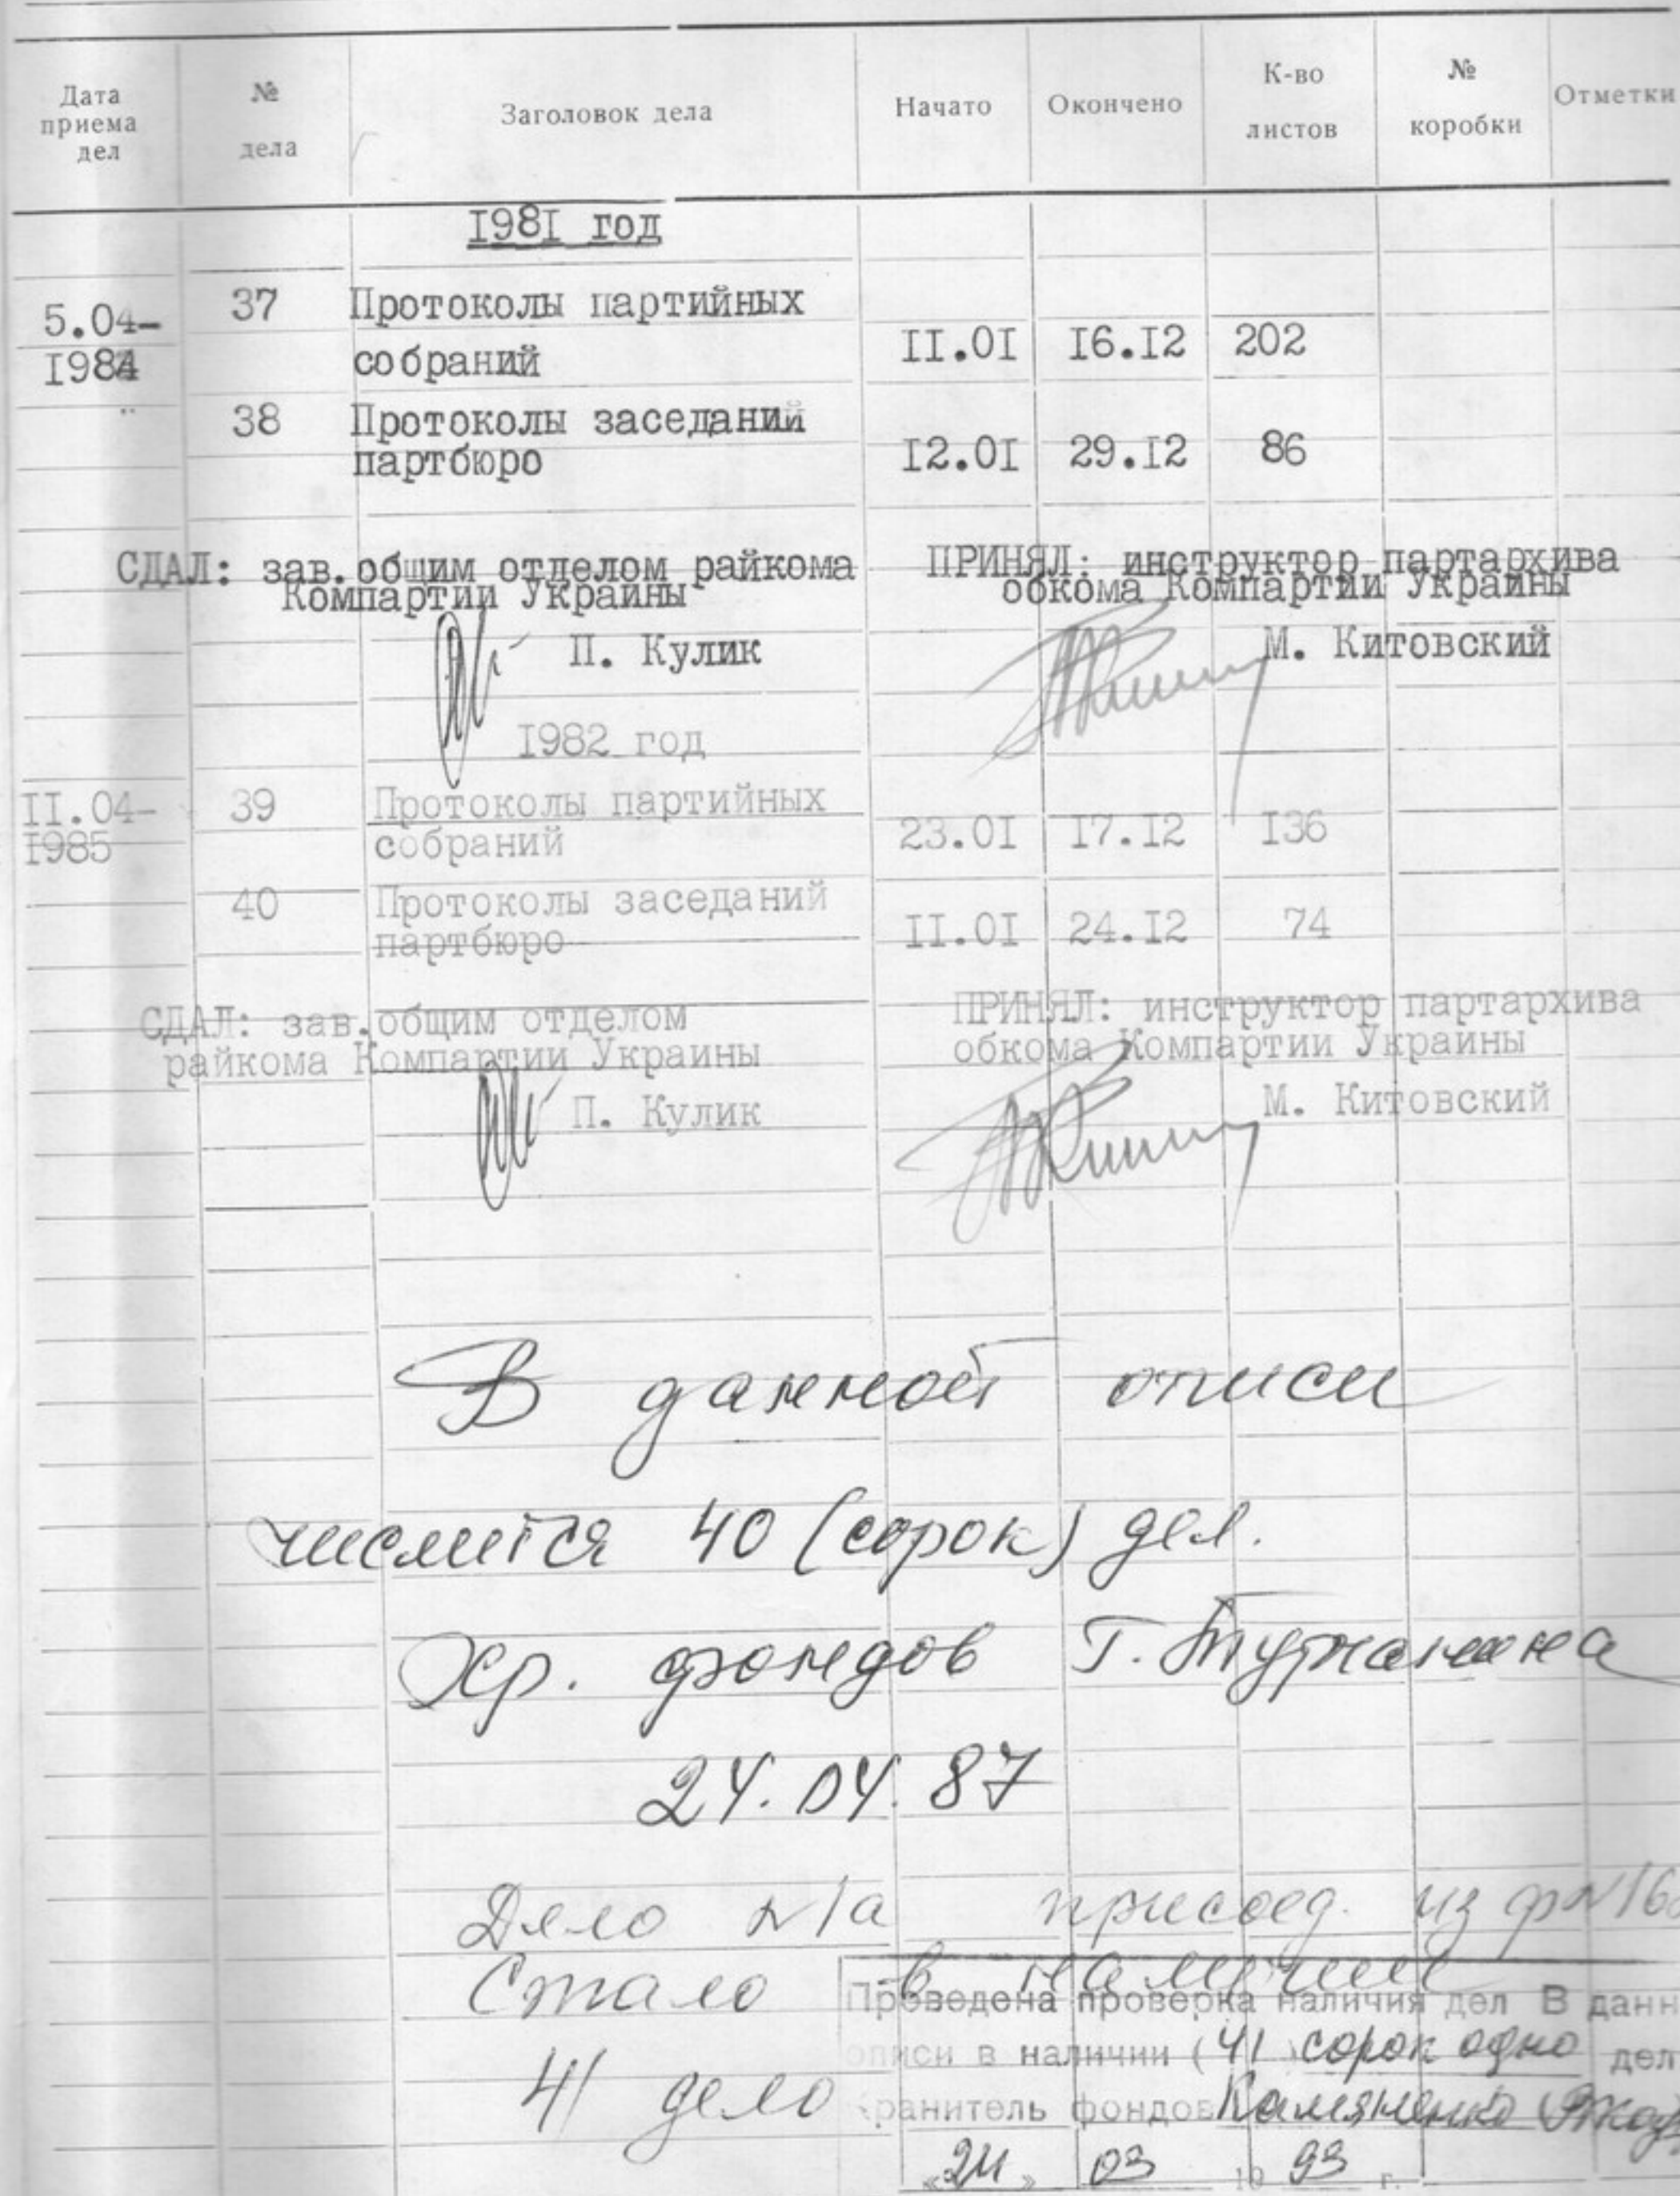 Дата приема дел № дела Заголовок дела Начато Окончено К-во листов № коробки Отметки
I98I год
5.04- 37 Протоколы партийных
I984 собраний II.0I I6.I2 202
" 38 Протоколы заседаний
партбюро I2.0I 29.I2 86
СДАЛ: зав.общим отделом райкома ПРИНЯЛ: инструктор партархива
Компартии Украины обкома Компартии Украины
П. Кулик М. Китовский
I982 год
II.04- 39 Протоколы партийных
I985 собраний 23.0I I7.I2 I36
40 Протоколы заседаний
партбюро II.0I 24.I2 74
СДАЛ: зав.общим отделом ПРИНЯЛ: инструктор партархива
райкома Компартии Украины обкома Компартии Украины
П. Кулик М. Китовский
В данной описи
числится 40 (сорок) дел.
Хр. фондов Г.
24.04.87
Дело №1а присоед. из ф№
Стало в наличии
41 дело
Проведена проверка наличия дел В данн
описи в наличии (41) сорок одно дел
хранитель фондов
«24» 03 19 93 г.